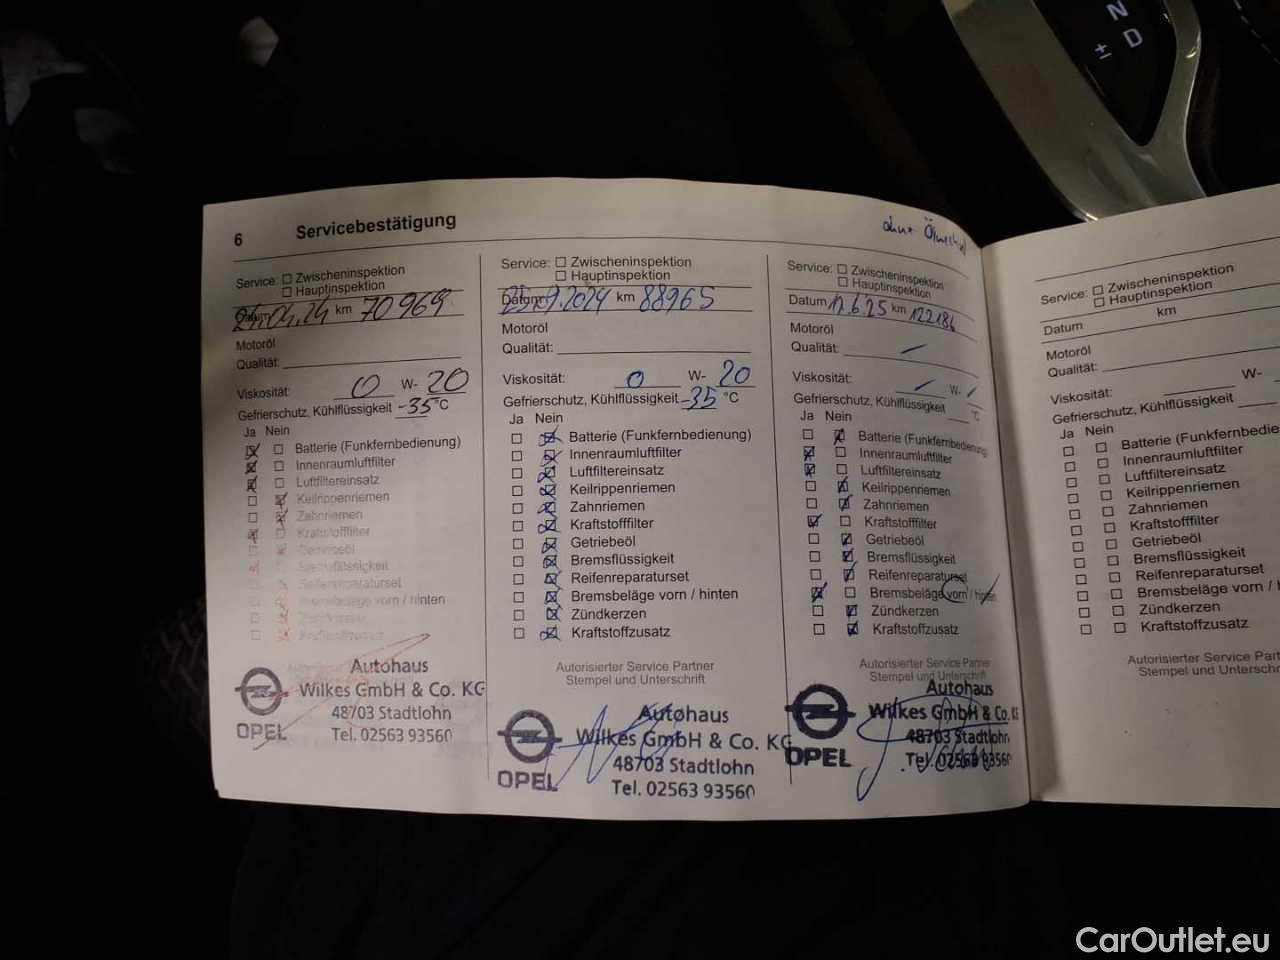 N
± D
6 Servicebestätigung
ohne Ölwechsel
Service: ☐ Zwischeninspektion
☐ Hauptinspektion
Datum 24.04.24 km 70969
Motoröl
Qualität:
Viskosität: 0 W- 20
Gefrierschutz, Kühlflüssigkeit -35 °C
Ja Nein
☒ ☐ Batterie (Funkfernbedienung)
☒ ☐ Innenraumluftfilter
☒ ☐ Luftfiltereinsatz
☐ ☒ Keilrippenriemen
☐ ☒ Zahnriemen
☒ ☐ Kraftstofffilter
☐ ☒ Getriebeöl
☒ ☐ Bremsflüssigkeit
☐ ☒ Reifenreparaturset
☐ ☒ Bremsbeläge vorn / hinten
☐ ☒ Zündkerzen
☐ ☒ Kraftstoffzusatz
Autohaus
Wilkes GmbH & Co. KG
48703 Stadtlohn
OPEL Tel. 02563 93560
Service: ☐ Zwischeninspektion
☐ Hauptinspektion
Datum 25.9.2024 km 88965
Motoröl
Qualität:
Viskosität: 0 W- 20
Gefrierschutz, Kühlflüssigkeit -35 °C
Ja Nein
☐ ☒ Batterie (Funkfernbedienung)
☐ ☒ Innenraumluftfilter
☐ ☒ Luftfiltereinsatz
☐ ☒ Keilrippenriemen
☐ ☒ Zahnriemen
☐ ☒ Kraftstofffilter
☐ ☒ Getriebeöl
☐ ☒ Bremsflüssigkeit
☐ ☒ Reifenreparaturset
☐ ☒ Bremsbeläge vorn / hinten
☐ ☒ Zündkerzen
☐ ☒ Kraftstoffzusatz
Autorisierter Service Partner
Stempel und Unterschrift
Autohaus
Wilkes GmbH & Co. KG
48703 Stadtlohn
OPEL Tel. 02563 93560
Service: ☐ Zwischeninspektion
☐ Hauptinspektion
Datum 12.6.25 km 122186
Motoröl
Qualität: /
Viskosität: / W- /
Gefrierschutz, Kühlflüssigkeit °C
Ja Nein
☐ ☒ Batterie (Funkfernbedienung)
☒ ☐ Innenraumluftfilter
☒ ☐ Luftfiltereinsatz
☐ ☒ Keilrippenriemen
☐ ☒ Zahnriemen
☒ ☐ Kraftstofffilter
☐ ☒ Getriebeöl
☐ ☒ Bremsflüssigkeit
☐ ☒ Reifenreparaturset
☒ ☐ Bremsbeläge vorn / hinten
☐ ☒ Zündkerzen
☐ ☒ Kraftstoffzusatz
Autorisierter Service Partner
Stempel und Unterschrift
Autohaus
Wilkes GmbH & Co. KG
48703 Stadtlohn
OPEL Tel. 02563 93560
Service: ☐ Zwischeninspektion
☐ Hauptinspektion
Datum km
Motoröl
Qualität:
Viskosität: W-
Gefrierschutz, Kühlflüssigkeit
Ja Nein
☐ ☐ Batterie (Funkfernbedie
☐ ☐ Innenraumluftfilter
☐ ☐ Luftfiltereinsatz
☐ ☐ Keilrippenriemen
☐ ☐ Zahnriemen
☐ ☐ Kraftstofffilter
☐ ☐ Getriebeöl
☐ ☐ Bremsflüssigkeit
☐ ☐ Reifenreparaturset
☐ ☐ Bremsbeläge vorn / h
☐ ☐ Zündkerzen
☐ ☐ Kraftstoffzusatz
Autorisierter Service Part
Stempel und Unterschri
CarOutlet.eu